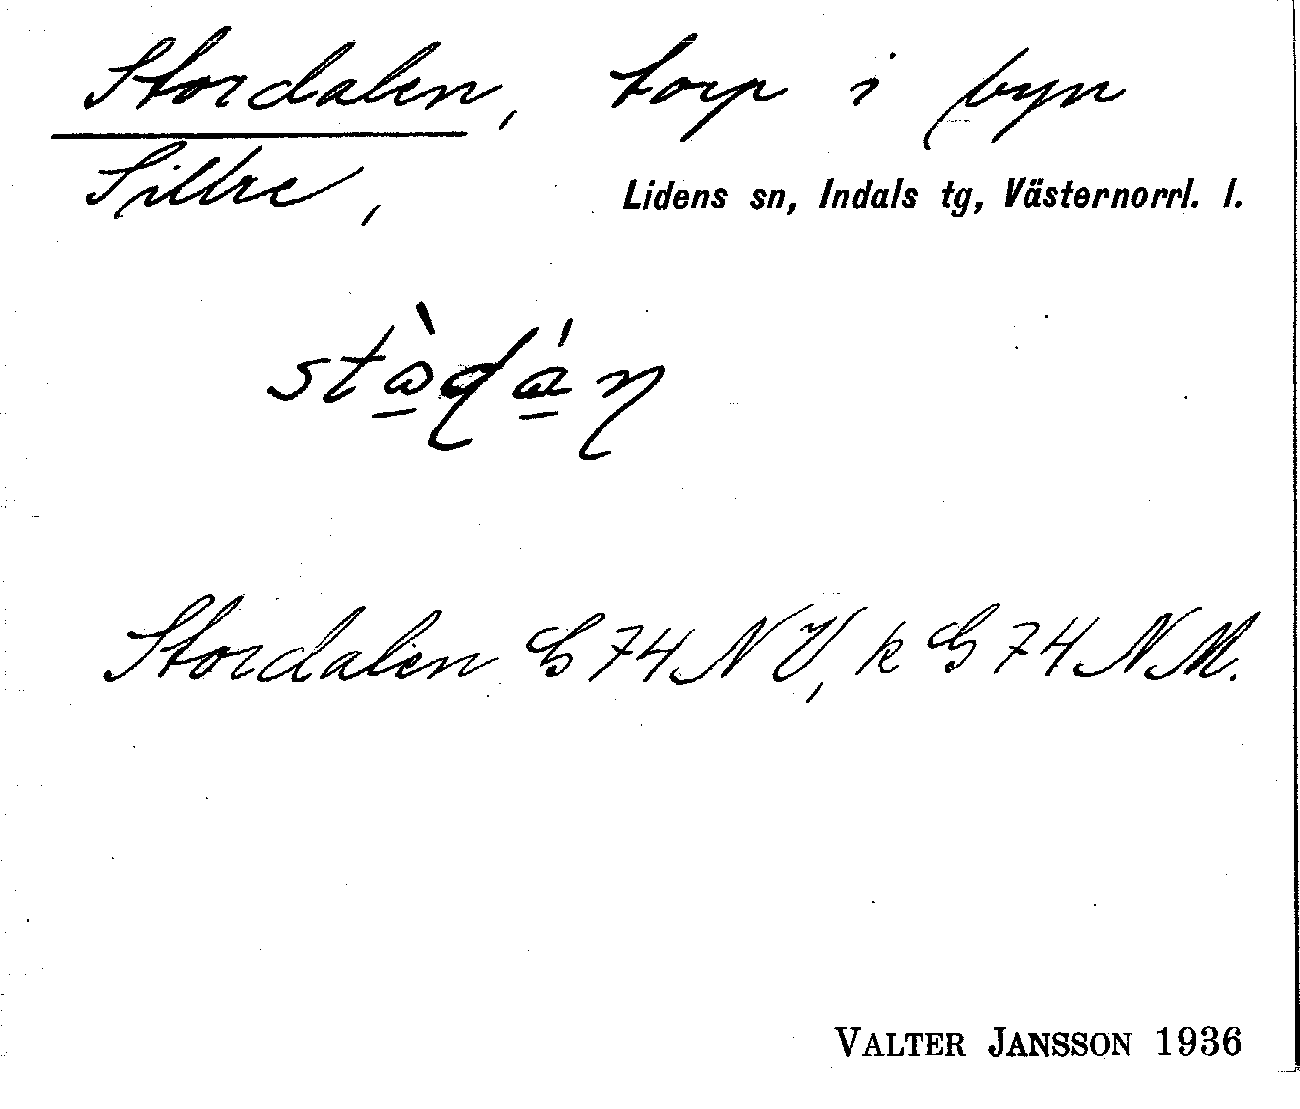 Stordalen, torp i byn
Sillre,
Lidens sn, Indals tg, Västernorrl. l.
Stordalen G 74 NV, k G 74 NM.
VALTER JANSSON 1936